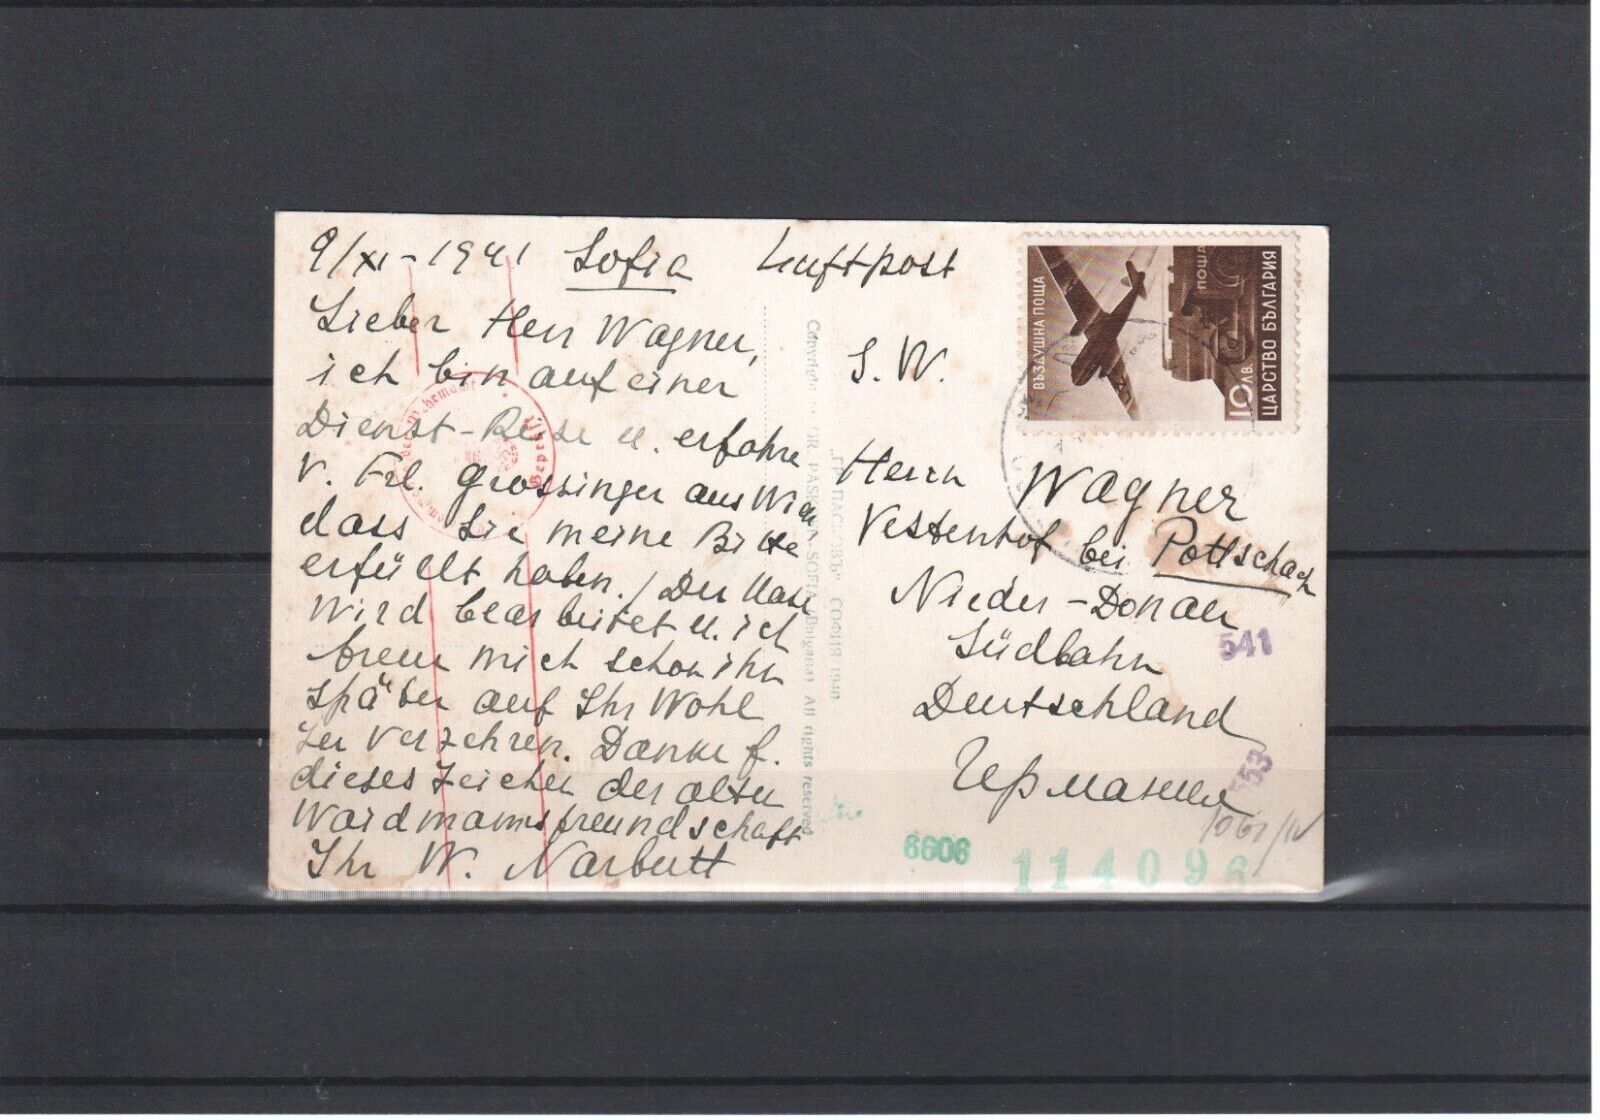 9/XI - 1941 Sofia
Lieber Herr Wagner,
ich bin auf einer
Dienst-Reise u. erfahre
v. Frl. Grossinger aus Wien
dass Sie meine Bitte
erfüllt haben. / Der Hase
wird bearbeitet u. ich
freue mich schon ihn
später auf Ihr Wohl
zu verzehren. Danke f.
dieses Zeichen der alten
Waidmannsfreundschaft
Ihr W. Narbutt
Luftpost
S. W.
Herrn Wagner
Vestenhof bei Pottschach
Nieder-Donau
Südbahn
Deutschland
Германия
ВЪЗДУШНА ПОЩА
ПОЩА
10 ЛВ.
ЦАРСТВО БЪЛГАРИЯ
Copyright GR. PASKOFF SOFIA (Bulgaria) All rights reserved
"ГР. ПАСКОВЪ" СОФИЯ 1940
Geprüft
der Wehrmacht
541
553
6606
114096